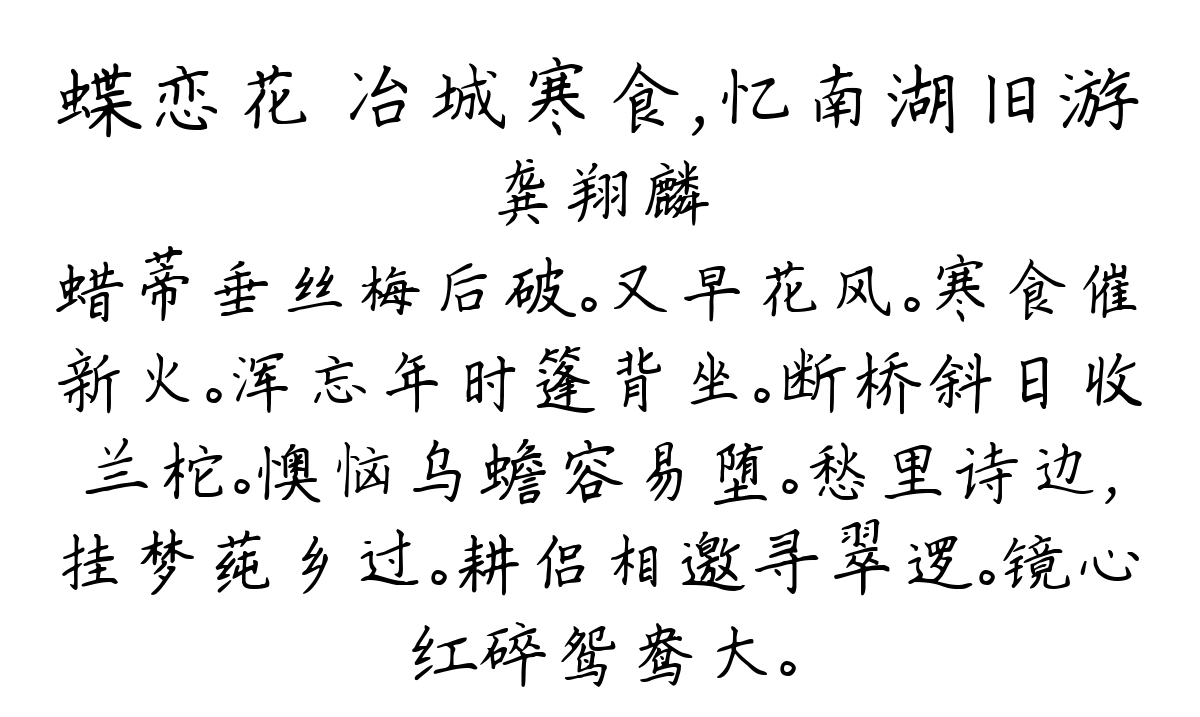 蝶恋花 冶城寒食,忆南湖旧游
龚翔麟
蜡蒂垂丝梅后破。又早花风。寒食催
新火。浑忘年时篷背坐。断桥斜日收
兰柁。懊恼乌蟾容易堕。愁里诗边,
挂梦莼乡过。耕侣相邀寻翠逻。镜心
红碎鸳鸯大。